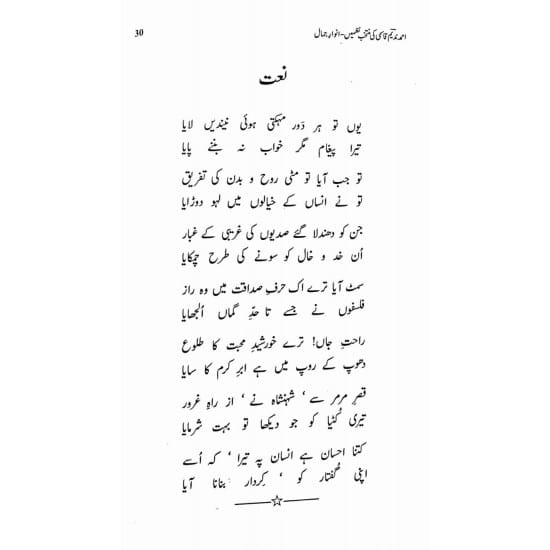 احمد ندیم قاسمی کی منتخب نظمیں - انوارِ جمال
30
نعت
یوں تو ہر دَور مہکتی ہوئی نیندیں لایا
تیرا پیغام مگر خواب نہ بننے پایا
تو جب آیا تو مٹی روح و بدن کی تفریق
تو نے انساں کے خیالوں میں لہو دوڑایا
جن کو دھندلا گئے صدیوں کی غریبی کے غبار
اُن خد و خال کو سونے کی طرح چمکایا
سمٹ آیا ترے اک حرفِ صداقت میں وہ راز
فلسفوں نے جسے تا حدِّ گماں اُلجھایا
راحتِ جاں! ترے خورشیدِ محبت کا طلوع
دھوپ کے روپ میں ہے ابرِ کرم کا سایا
قصرِ مرمر سے ‘ شہنشاہ نے ‘ از راہِ غرور
تیری کُٹیا کو جو دیکھا تو بہت شرمایا
کتنا احسان ہے انسان پہ تیرا ‘ کہ اُسے
اپنی گفتار کو ‘ کردار بنانا آیا